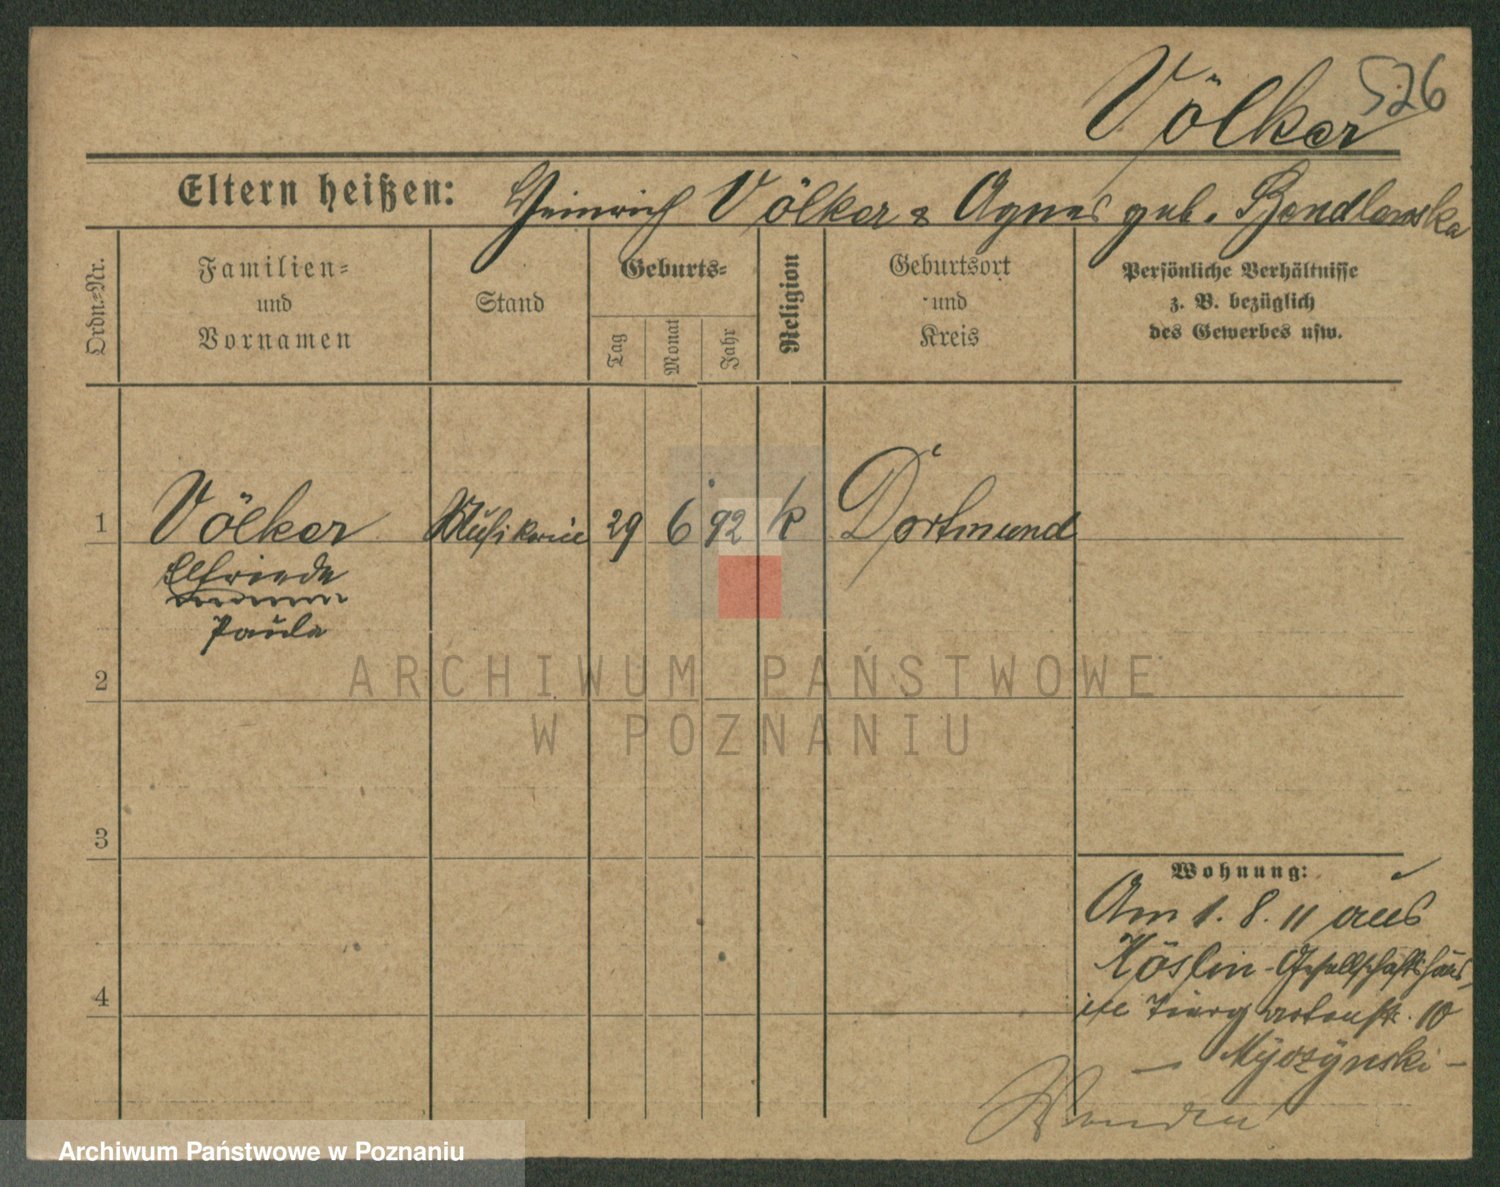 526
Völker
Eltern heißen: Heinrich Völker & Agnes geb. Bendlewska
Ordn=Nr.
Familien=
und
Vornamen
Stand
Geburts=
Tag
Monat
Jahr
Religion
Geburtsort
und
Kreis
Persönliche Verhältnisse
z. B. bezüglich
des Gewerbes usw.
1 Völker Musikerin 29 6 92 k Dortmund
Elfriede
Paula
2
3
4
Wohnung:
Am 1. 8. 11 aus
Köslin - Gesellschaftshaus,
Tiergartenstr. 10
ARCHIWUM PAŃSTWOWE
W POZNANIU
Archiwum Państwowe w Poznaniu